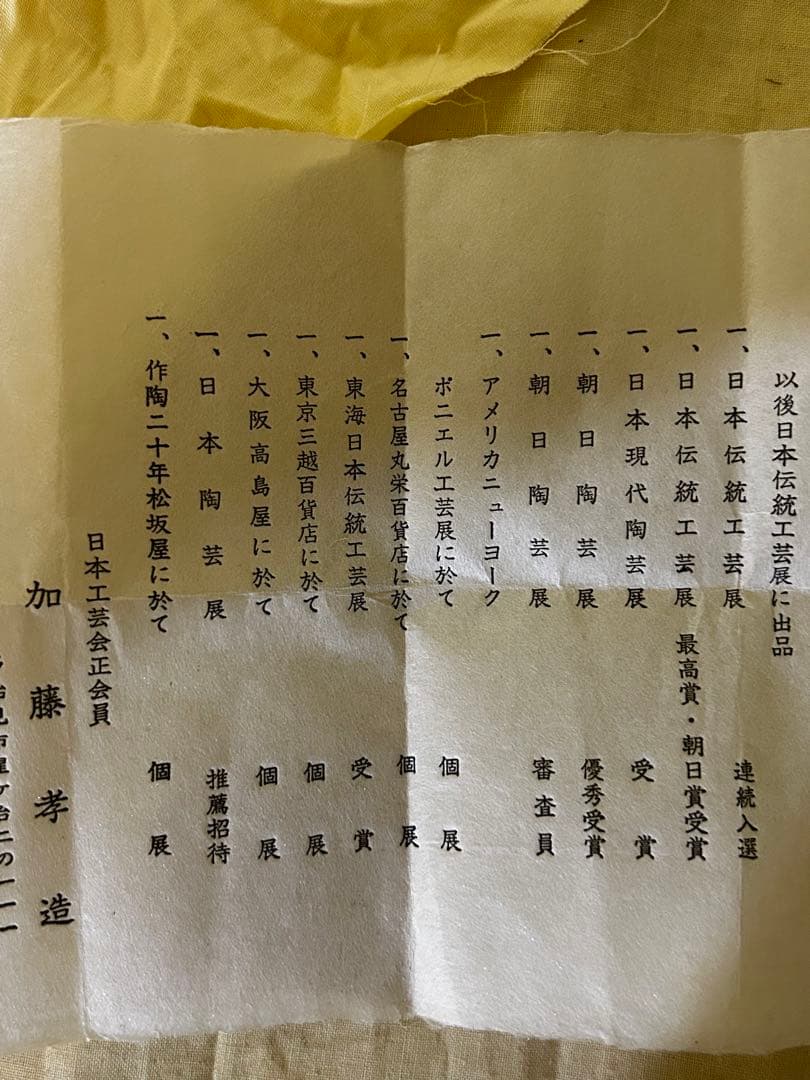 以後日本伝統工芸展に出品
一、日本伝統工芸展 連続入選
一、日本伝統工芸展 最高賞・朝日賞受賞
一、日本現代陶芸展 受賞
一、朝日陶芸展 優秀受賞
一、朝日陶芸展 審査員
一、アメリカニューヨーク
ボニエル工芸展に於て 個展
一、名古屋丸栄百貨店に於て 個展
一、東海日本伝統工芸展 受賞
一、東京三越百貨店に於て 個展
一、大阪高島屋に於て 個展
一、日本陶芸展 推薦招待
一、作陶二十年松坂屋に於て 個展
日本工芸会正会員
加藤孝造